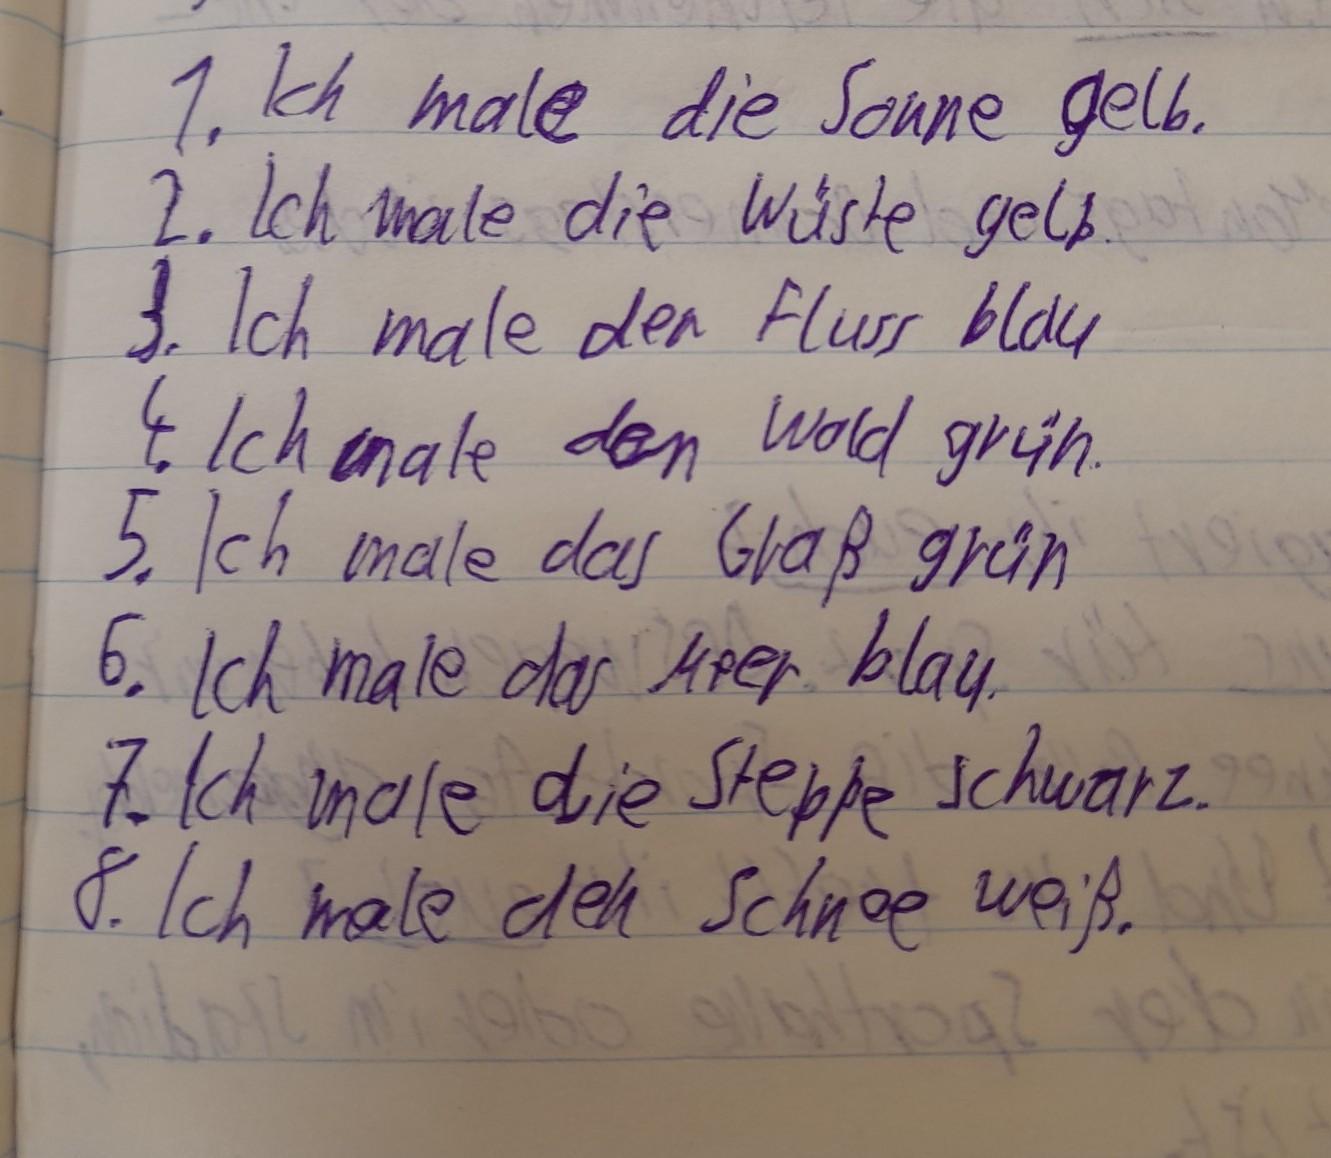 1. Ich male die Sonne gelb.
2. Ich male die Wüste gelb.
3. Ich male den Fluss blau
4. Ich male den Wald grün.
5. Ich male das Graß grün
6. Ich male das Meer blau.
7. Ich male die Steppe schwarz.
8. Ich male den Schnee weiß.